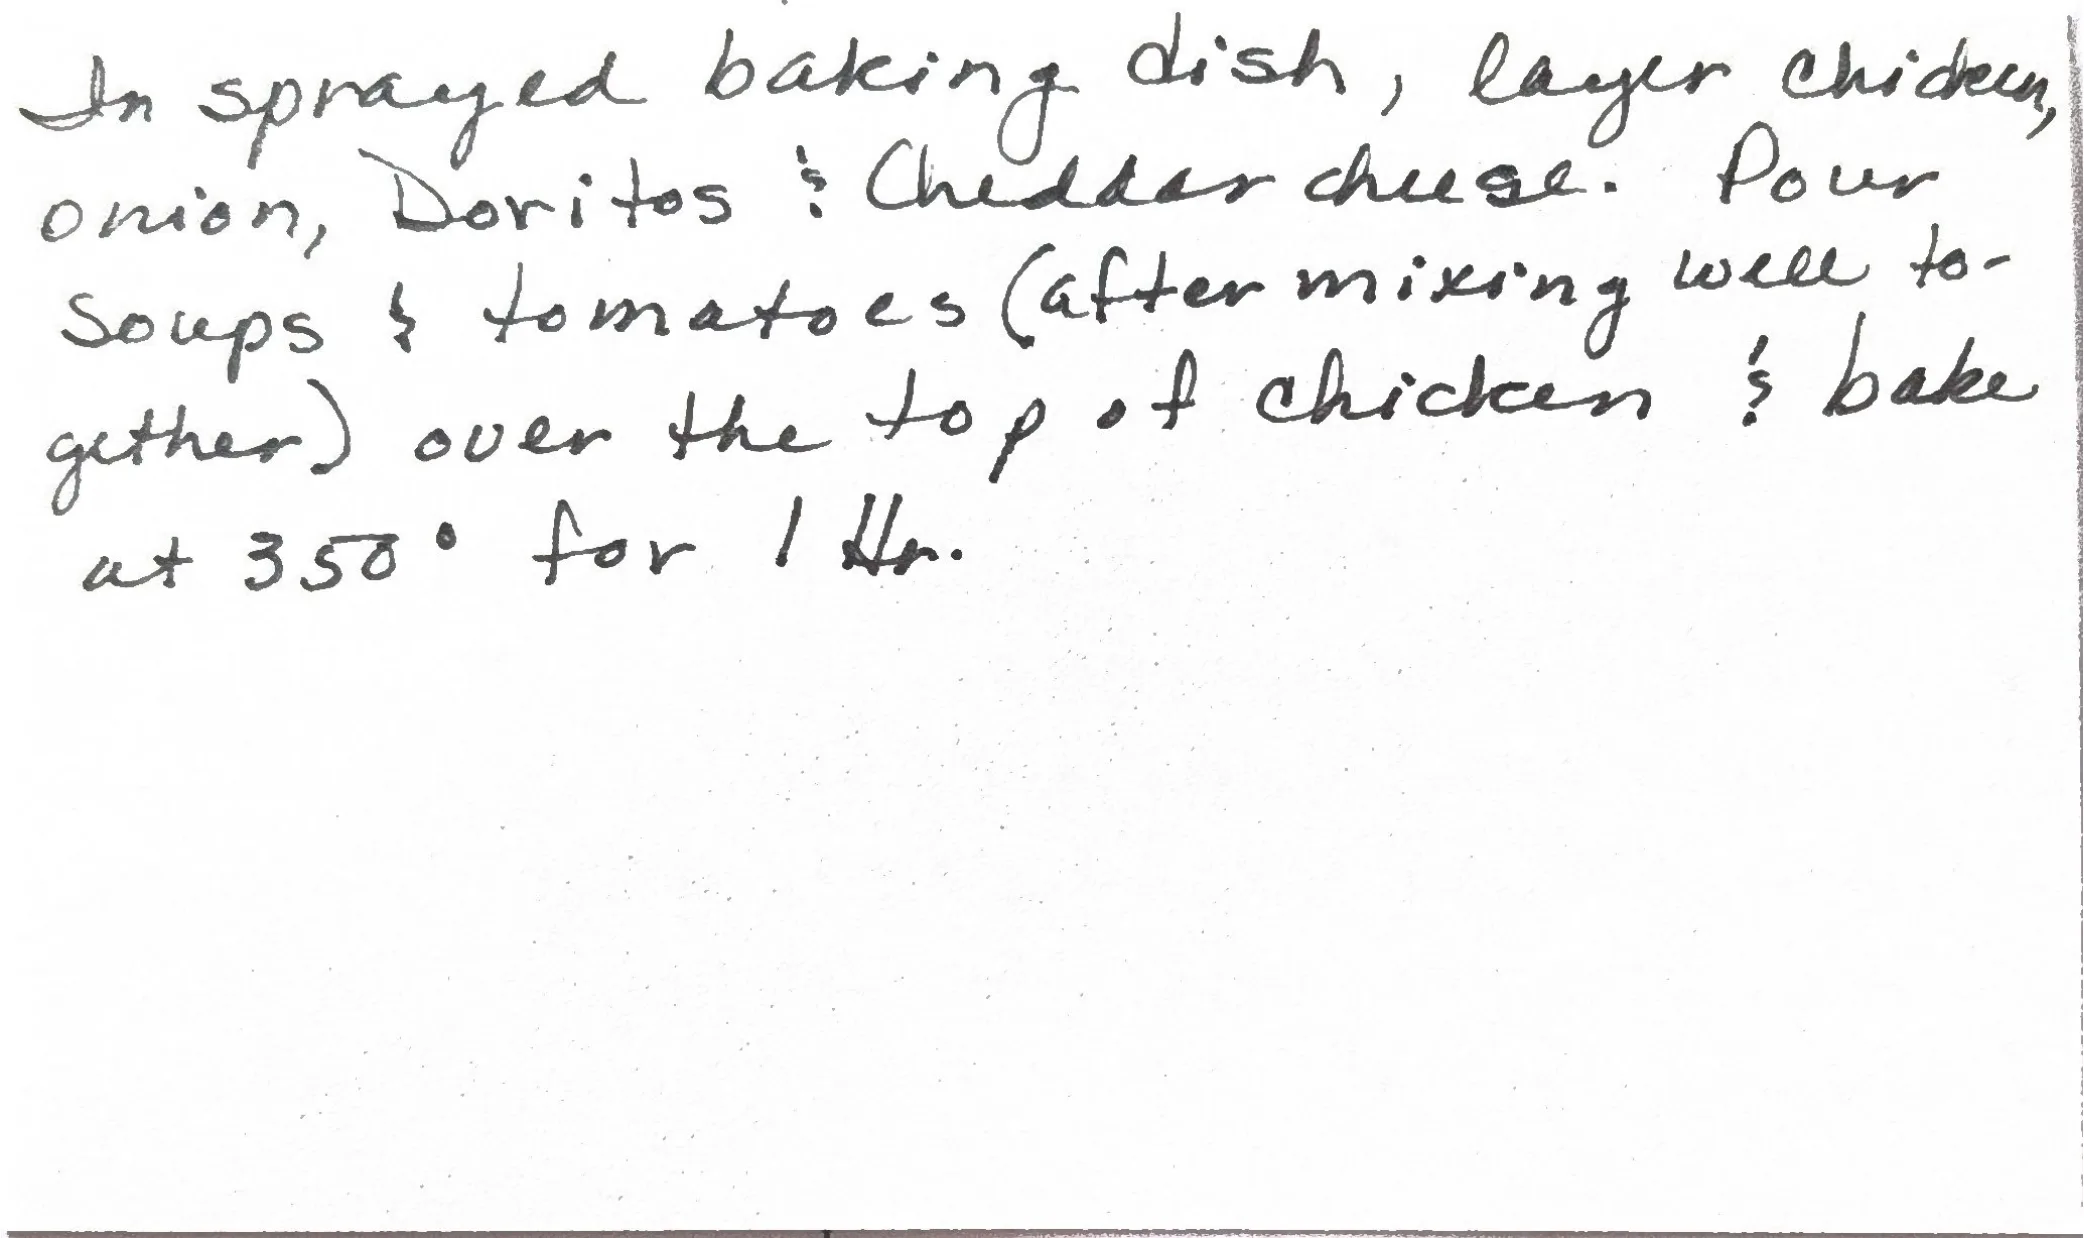 In sprayed baking dish, layer chicken,
onion, Doritos & Cheddar cheese. Pour
Soups & tomatoes (after mixing well to-
gether) over the top of chicken & bake
at 350° for 1 Hr.